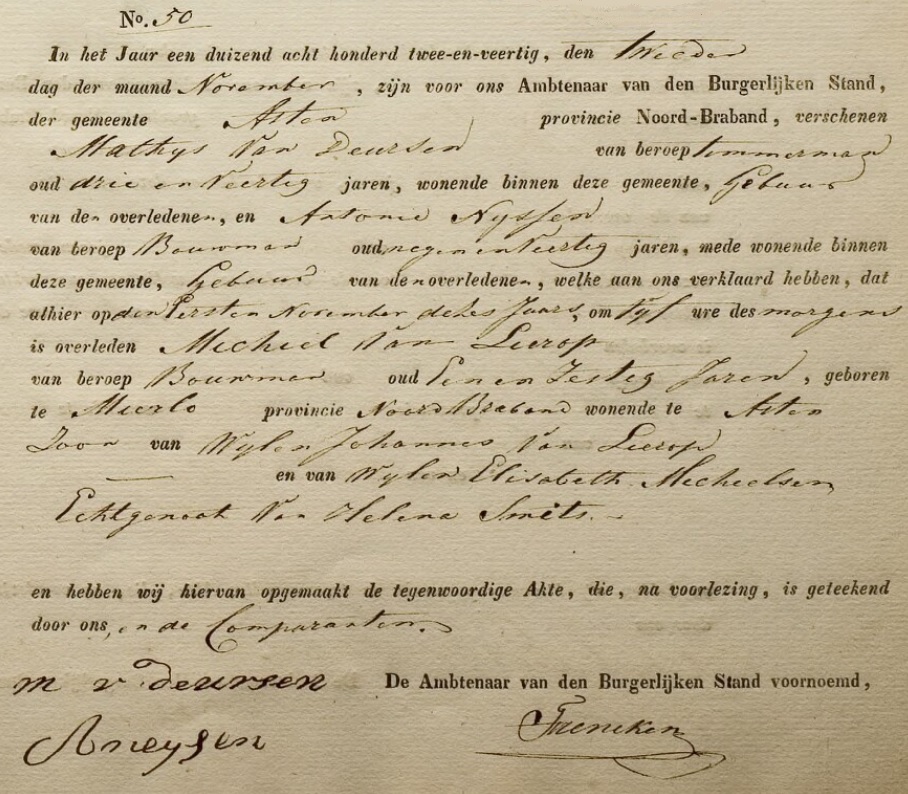 No. 50
In het Jaar een duizend acht honderd twee-en-veertig, den tweeden
dag der maand November, zijn voor ons Ambtenaar van den Burgerlijken Stand,
der gemeente Asten provincie Noord-Braband, verschenen
Mathys Van Deursen van beroep timmerman
oud drie en Veertig jaren, wonende binnen deze gemeente, Gebuur
van den overledenen, en Antonie Nyssen
van beroep Bouwman oud negen en Veertig jaren, mede wonende binnen
deze gemeente, Gebuur van den overledenen, welke aan ons verklaard hebben, dat
alhier op den Eersten November dezes Jaars, om Vyf ure des morgens
is overleden Michiel Van Lierop
van beroep Bouwman oud Een en Zestig Jaren, geboren
te Mierlo provincie Noord Braband wonende te Asten
Zoon van Wylen Johannes Van Lierop
en van Wylen Elisabeth Micheelsen
Echtgenoot Van Helena Smits.
en hebben wij hiervan opgemaakt de tegenwoordige Akte, die, na voorlezing, is geteekend
door ons, en de Comparanten.
m v Deursen De Ambtenaar van den Burgerlijken Stand voornoemd,
A neysen Frencken